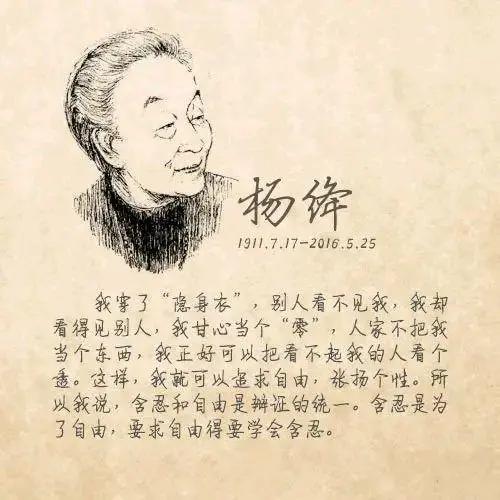 杨绛
1911.7.17-2016.5.25
我穿了“隐身衣”，别人看不见我，我却
看得见别人，我甘心当个“零”，人家不把我
当个东西，我正好可以把看不起我的人看个
透。这样，我就可以追求自由，张扬个性。所
以我说，含忍和自由是辩证的统一。含忍是为
了自由，要求自由得要学会含忍。